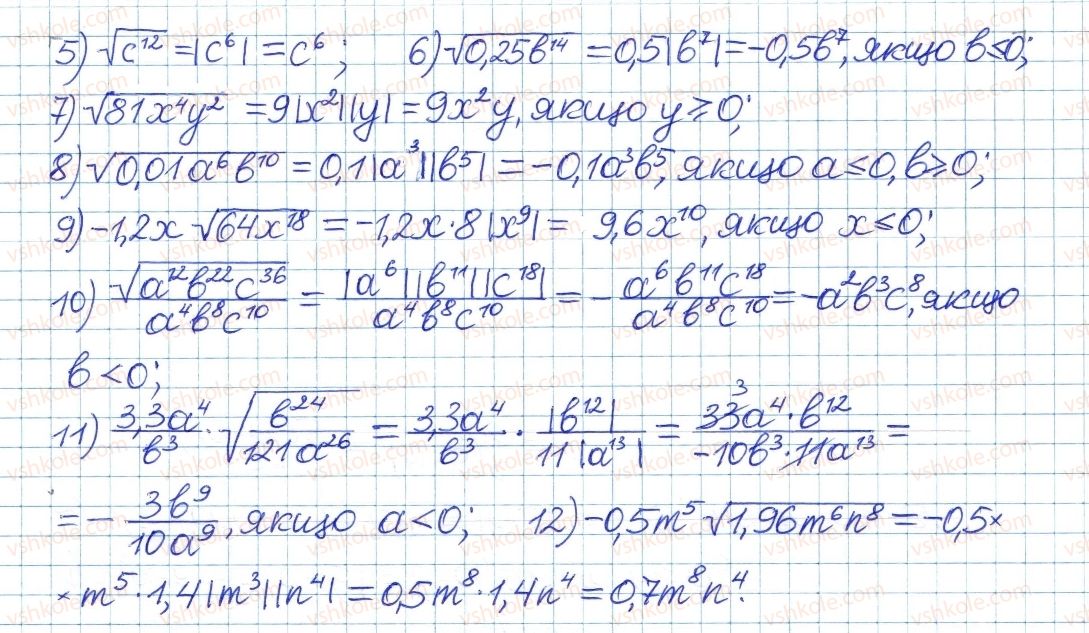 5) √c¹² = |c⁶| = c⁶; 6) √0,25b¹⁴ = 0,5|b⁷| = -0,5b⁷, якщо b≤0;
7) √81x⁴y² = 9|x²||y| = 9x²y, якщо y≥0;
8) √0,01a⁶b¹⁰ = 0,1|a³||b⁵| = -0,1a³b⁵, якщо a≤0, b≥0;
9) -1,2x·√64x¹⁸ = -1,2x·8|x⁹| = 9,6x¹⁰, якщо x≤0;
10) √a¹²b²²c³⁶/a⁴b⁸c¹⁰ = |a⁶||b¹¹||c¹⁸|/a⁴b⁸c¹⁰ = -a⁶b¹¹c¹⁸/a⁴b⁸c¹⁰ = -a²b³c⁸, якщо
b<0;
11) 3,3a⁴/b³·√b²⁴/121a²⁶ = 3,3a⁴/b³ · |b¹²|/11|a¹³| = 33³a⁴·b¹²/-10b³·11a¹³ =
= -3b⁹/10a⁹, якщо a<0; 12) -0,5m⁵·√1,96m⁶n⁸ = -0,5×
×m⁵·1,4|m³||n⁴| = 0,5m⁸·1,4n⁴ = 0,7m⁸n⁴.
vshkole.com